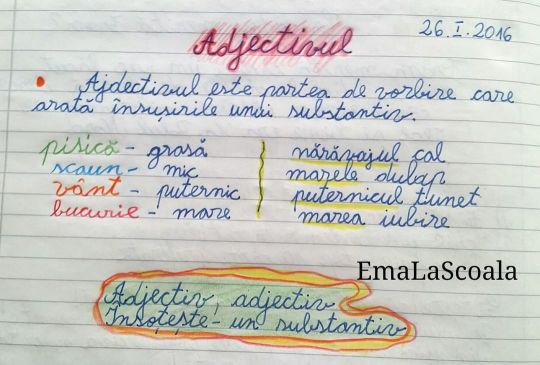 Adjectivul
26.I.2016
Ajdectivul este partea de vorbire care
arată însușirile unui substantiv.
pisică - grasă
scaun - mic
vânt - puternic
bucurie - mare
nărăvașul cal
marele dulap
puternicul tunet
marea iubire
EmaLaScoala
Adjectiv, adjectiv
Însoțește - un substantiv